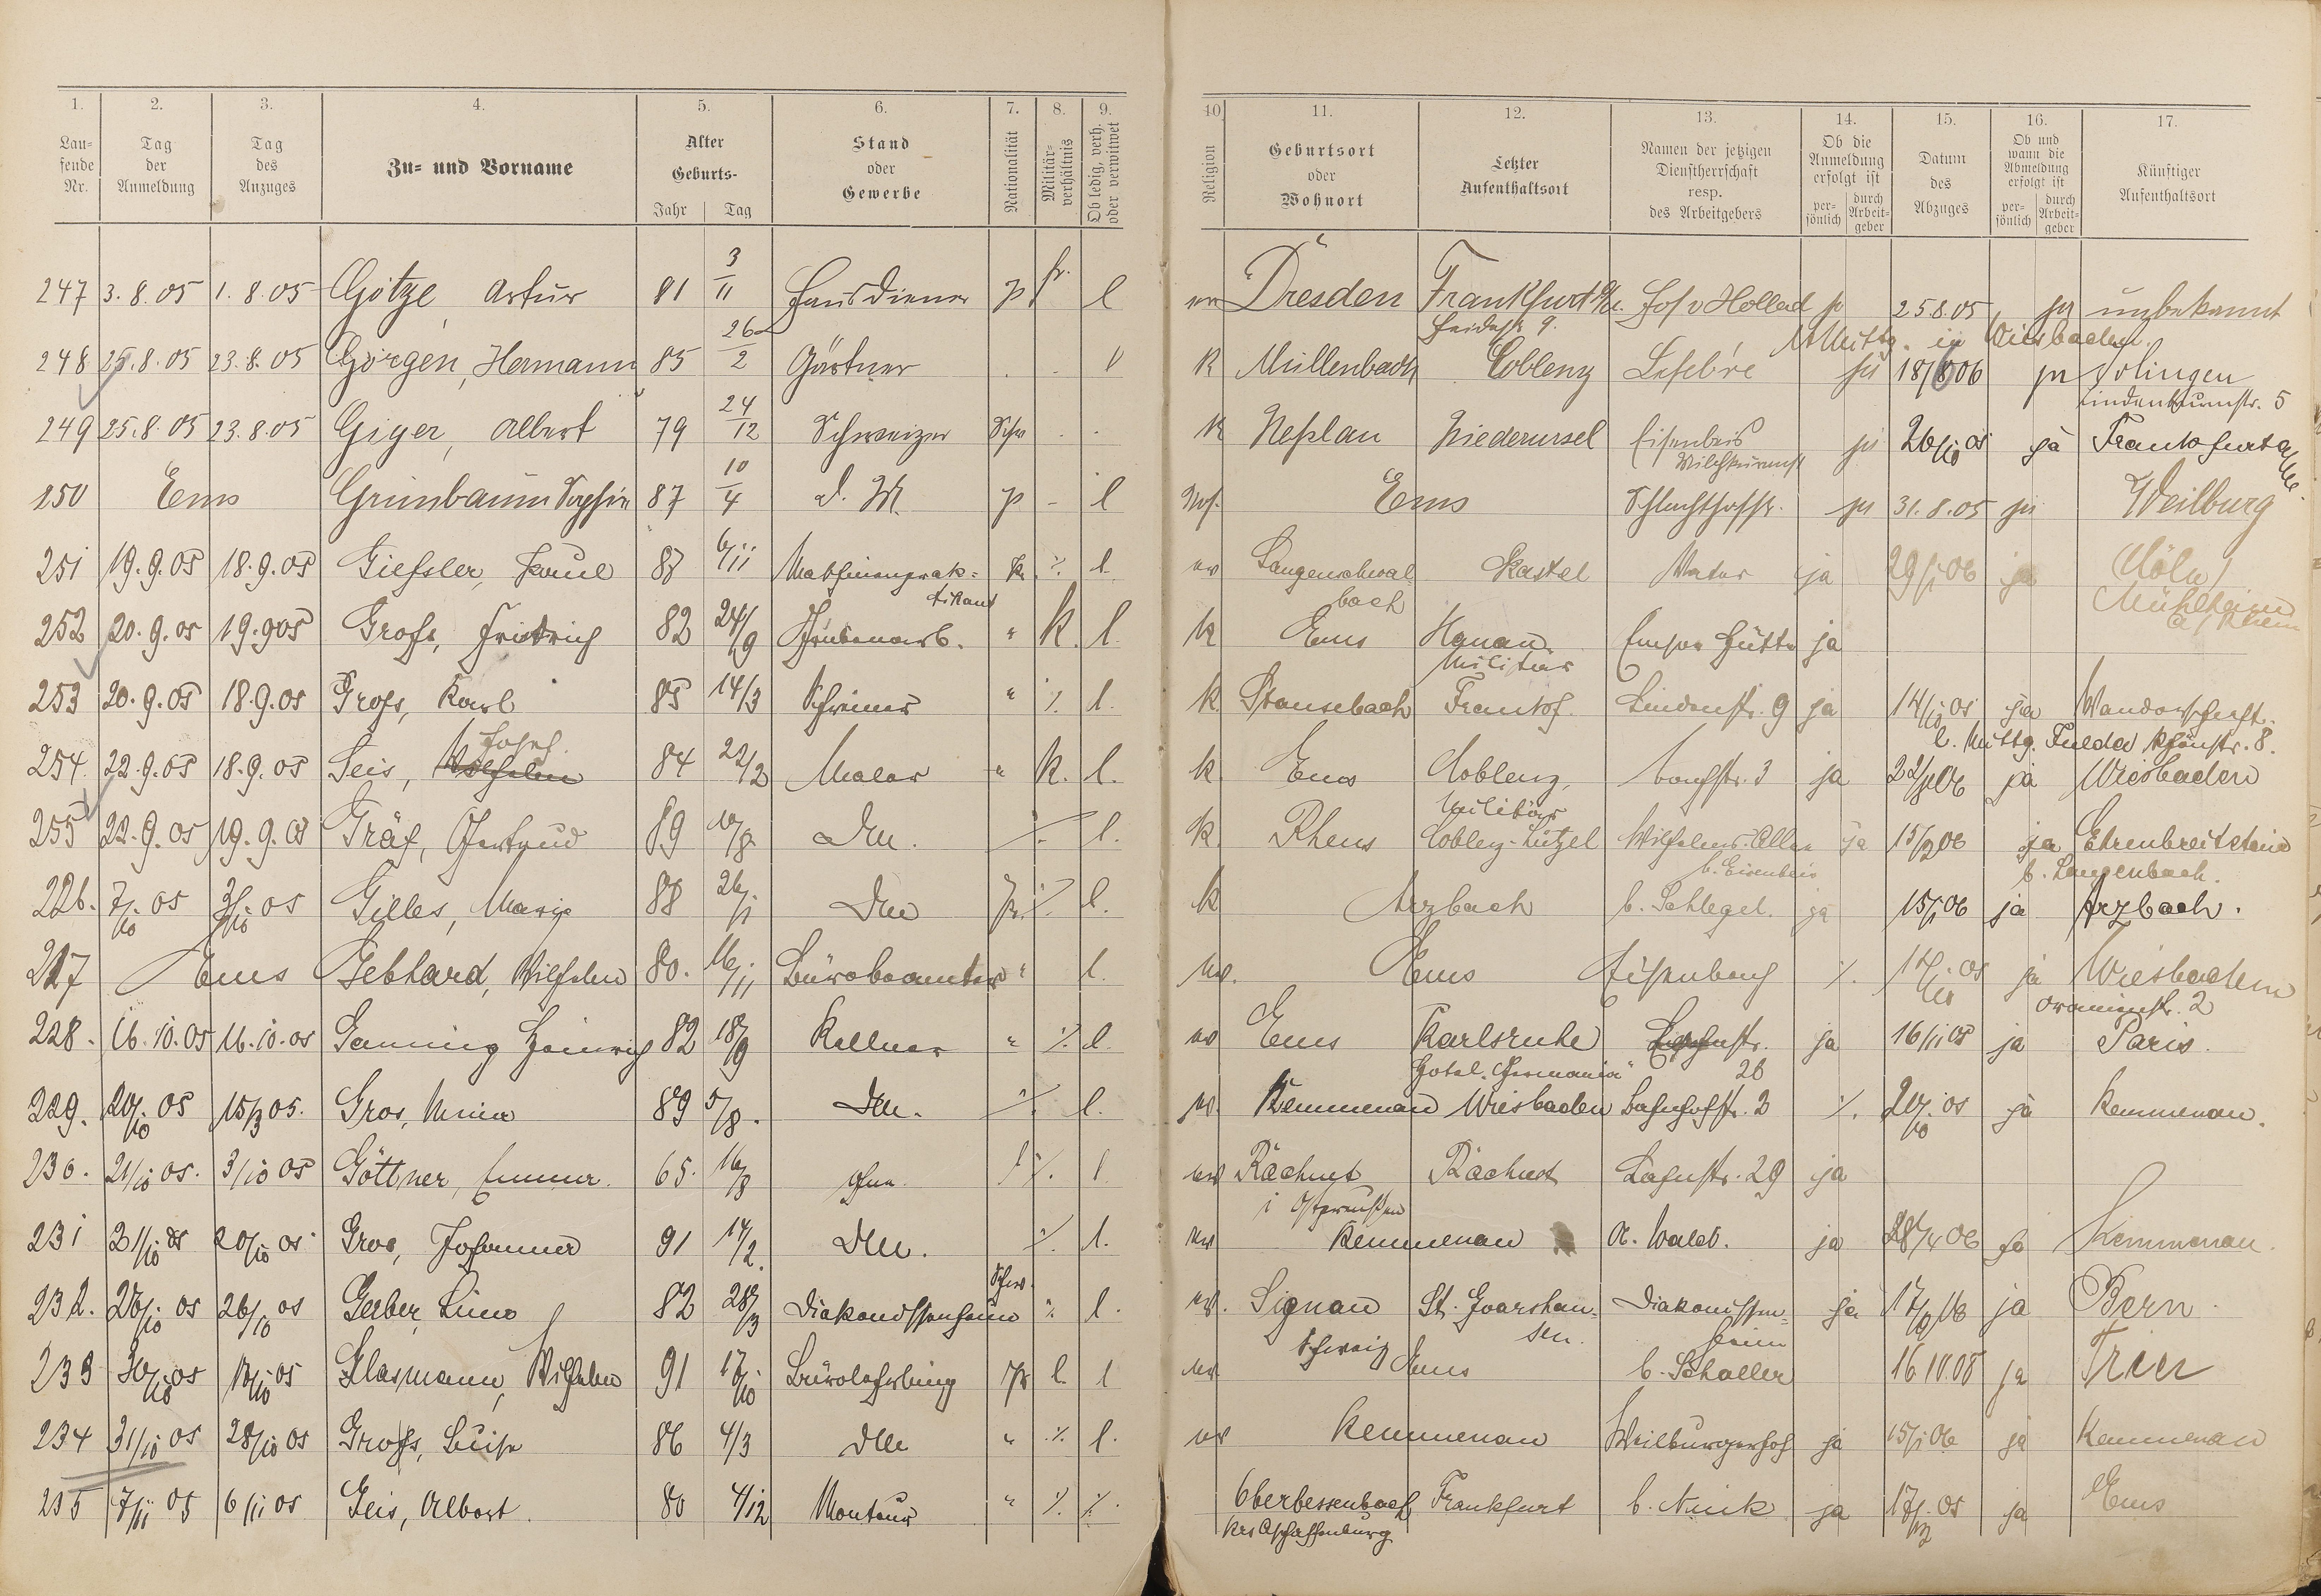 1. 2. 3. 4. 5. 6. 7. 8. 9. 10 11. 12. 13. 14. 15. 16. 17.
Laufende Nr. Tag der Anmeldung Tag des Anzuges Zu- und Vorname Alter Geburts- Jahr Tag Stand oder Gewerbe Nationalität Militärverhältnis Ob ledig, verh. oder verwitwet Religion Geburtsort oder Wohnort Letzter Aufenthaltsort Namen der jetzigen Dienstherrschaft resp. des Arbeitgebers Ob die Anmeldung erfolgt ist persönlich durch Arbeitgeber Datum des Abzuges Ob und wann die Abmeldung erfolgt ist persönlich durch Arbeitgeber Künftiger Aufenthaltsort
247 3.8.05 1.8.05 Götze, Artur 81 3/11 Hausdiener l Dresden Frankfurt 25.8.05 ja unbekannt
in Wiesbaden.
248 25.8.05 23.8.05 Görgen, Hermann 85 26/2 Gärtner k Müllenbach Coblenz Lefebre ja 18/8 06 ja Solingen
Lindenbaumstr. 5
249 25.8.05 23.8.05 Giger, Albert 79 24/12 Schweizer Schw k Neßlau Niederursel Eisenbeis ja 26/10 05 ja Frankfurt
250 Ems Grünbaum Sophie 87 10/4 d. M. p - l Ems Schlachthofstr. ja 31.8.05 ja Weilburg
251 19.9.05 18.9.05 Gießler, Paul 87 6/11 Maschinenprak= pr. % l. ev Langenschwal Kastel Vater ja 29/1 06 ja Cöln/
tikant bach Mühlheim
a/Rhein
252 20.9.05 19.9.05 Groß, Friedrich 82 24/9 Grubenarb. " k. l. k Ems Hanau Emser Hütte ja
Militär
253 20.9.05 18.9.05 Groß, Karl 85 14/3 Schreiner " % l. k. Stausebach Frankf. Lindenstr. 9 ja 14/10 05 ja Wanderschaft.
l. Mittg. Fulda Rhönstr. 8.
254. 22.9.05 18.9.05 Geis, Wilhelm Josef 84 22/2 Maler " k. l. k. Ems Coblenz, ja 06 ja Wiesbaden
Militär
255 22.9.05 19.9.05 Gräf, Gertrud 89 10/8 DM. % l. k. Rhens Coblenz-Lützel Wilhelms-Allee ja 15/2 06 ja Ehrenbreitstein
b. Eisenbeis b. Langenbach.
226. 7/10 05 05 Gilles, Maria 88 26/1 DM pr. % l. k Arzbach b. Schlegel. ja 15/1 06 ja Arzbach.
227 Ems Gebhard, Wilhelm 80. 16/11 Bürobeamter " l. ev. Ems %. 05 ja Wiesbaden
Oranienstr. 2
228. 16.10.05 16.10.05 Heinrich 82 18/9 Kellner " % l. ev Ems Karlsruhe ja 16/11 05 ja Paris.
Hotel "Germania" 28
229. 20/10 05 15/3 05. Gros, Mina 89 5/8. DM. % l. ev. Kemmenau Wiesbaden Bahnhofstr. 2 %. 20/10 05 ja Kemmenau.
230. 21/10 05. 3/10 05 Göttner, Emma. 65. 16/8 % l ev Lahnstr. 29 ja
i Ostpreußen
231 21/10 05 20/10 05 Gros, Johanna 91 14/2. DM. % l. ev Kemmenau ja 28/4 06 ja Kemmenau.
232. 26/10 05 26/10 05 Gerber Lina 82 28/3 Diakonissenheim Schw. % l. ev. Signau St. Goarshau- Diakonissen= ja ja Bern.
Schweiz sen. heim
233 30/10 05 05 Glasmann, Wilhelm 91 17/10 Bürolehrling pr l. l ev Ems b. Schaller 16.10.08 ja Trier
234 31/10 05 28/10 05 Groß, Luise 86 4/3 DM " % l. ev Kemmenau Weilburgerhof ja 15/1 06 ja Kemmenau
235 7/11 05 6/11 05 Geis, Albert. 80 4/12 Monteur " % %. Oberbessenbach Frankfurt b. Nink ja 17/12 05 ja Ems
Krs Aschaffenburg